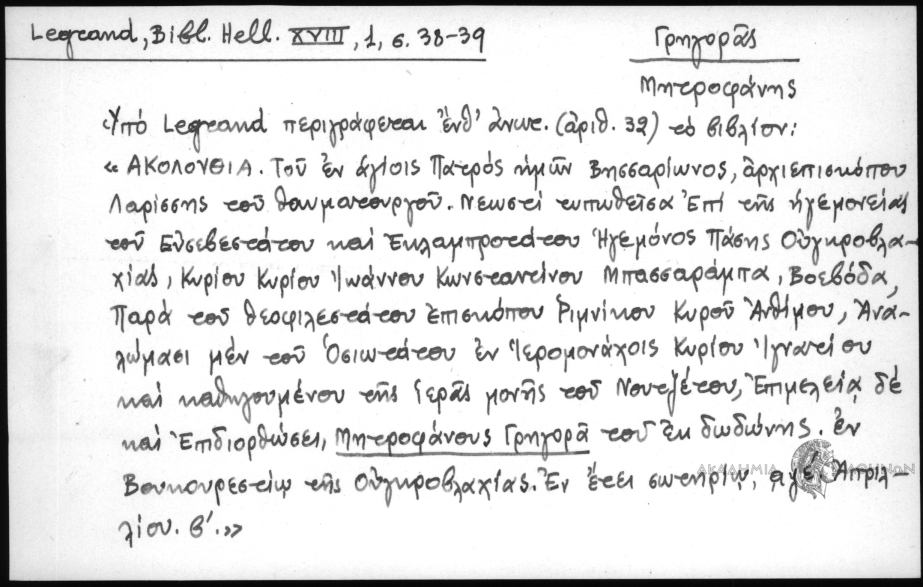 Legrand, Bibl. Hell. XVIII, 1, σ. 38-39
Γρηγορᾶς
Μητροφάνης
Ὑπό Legrand περιγράφεται ἔνθ' ἀνωτ. (ἀριθ. 32) τό βιβλίον:
« ΑΚΟΛΟΥΘΙΑ. Τοῦ ἐν ἁγίοις Πατρός ἡμῶν Βησσαρίωνος, ἀρχιεπισκόπου
Λαρίσσης τοῦ θαυματουργοῦ. Νεωστί τυπωθεῖσα Ἐπί τῆς ἡγεμονείας
τοῦ Εὐσεβεστάτου καί Ἐκλαμπροτάτου Ἡγεμόνος Πάσης Οὐγκροβλα-
χίας, Κυρίου Κυρίου Ἰωάννου Κωνσταντίνου Μπασσαράμπα, Βοεβόδα,
Παρά τοῦ θεοφιλεστάτου Ἐπισκόπου Ριμνίκου Κυροῦ Ἀνθίμου, Ἀνα-
λώμασι μέν τοῦ Ὁσιωτάτου ἐν Ἱερομονάχοις Κυρίου Ἰγνατίου
καί καθηγουμένου τῆς ἱερᾶς μονῆς τοῦ Νουτζέτου, Ἐπιμελείᾳ δέ
καί Ἐπιδιορθώσει, Μητροφάνους Γρηγορᾶ τοῦ ἐκ δωδώνης. ἐν
Βουκουρεστίῳ τῆς Οὐγκροβλαχίας. Ἐν ἔτει σωτηρίῳ, αψε. Ἀπριλ-
λίου. β'.»
ΑΚΑΔΗΜΙΑ ΑΘΗΝΩΝ